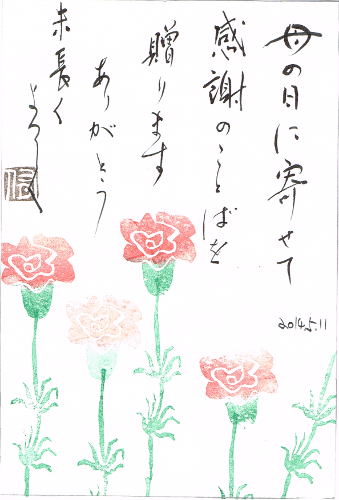 母の日に寄せて
感謝のことばを
贈ります
ありがとう
末長く
2014.5.11